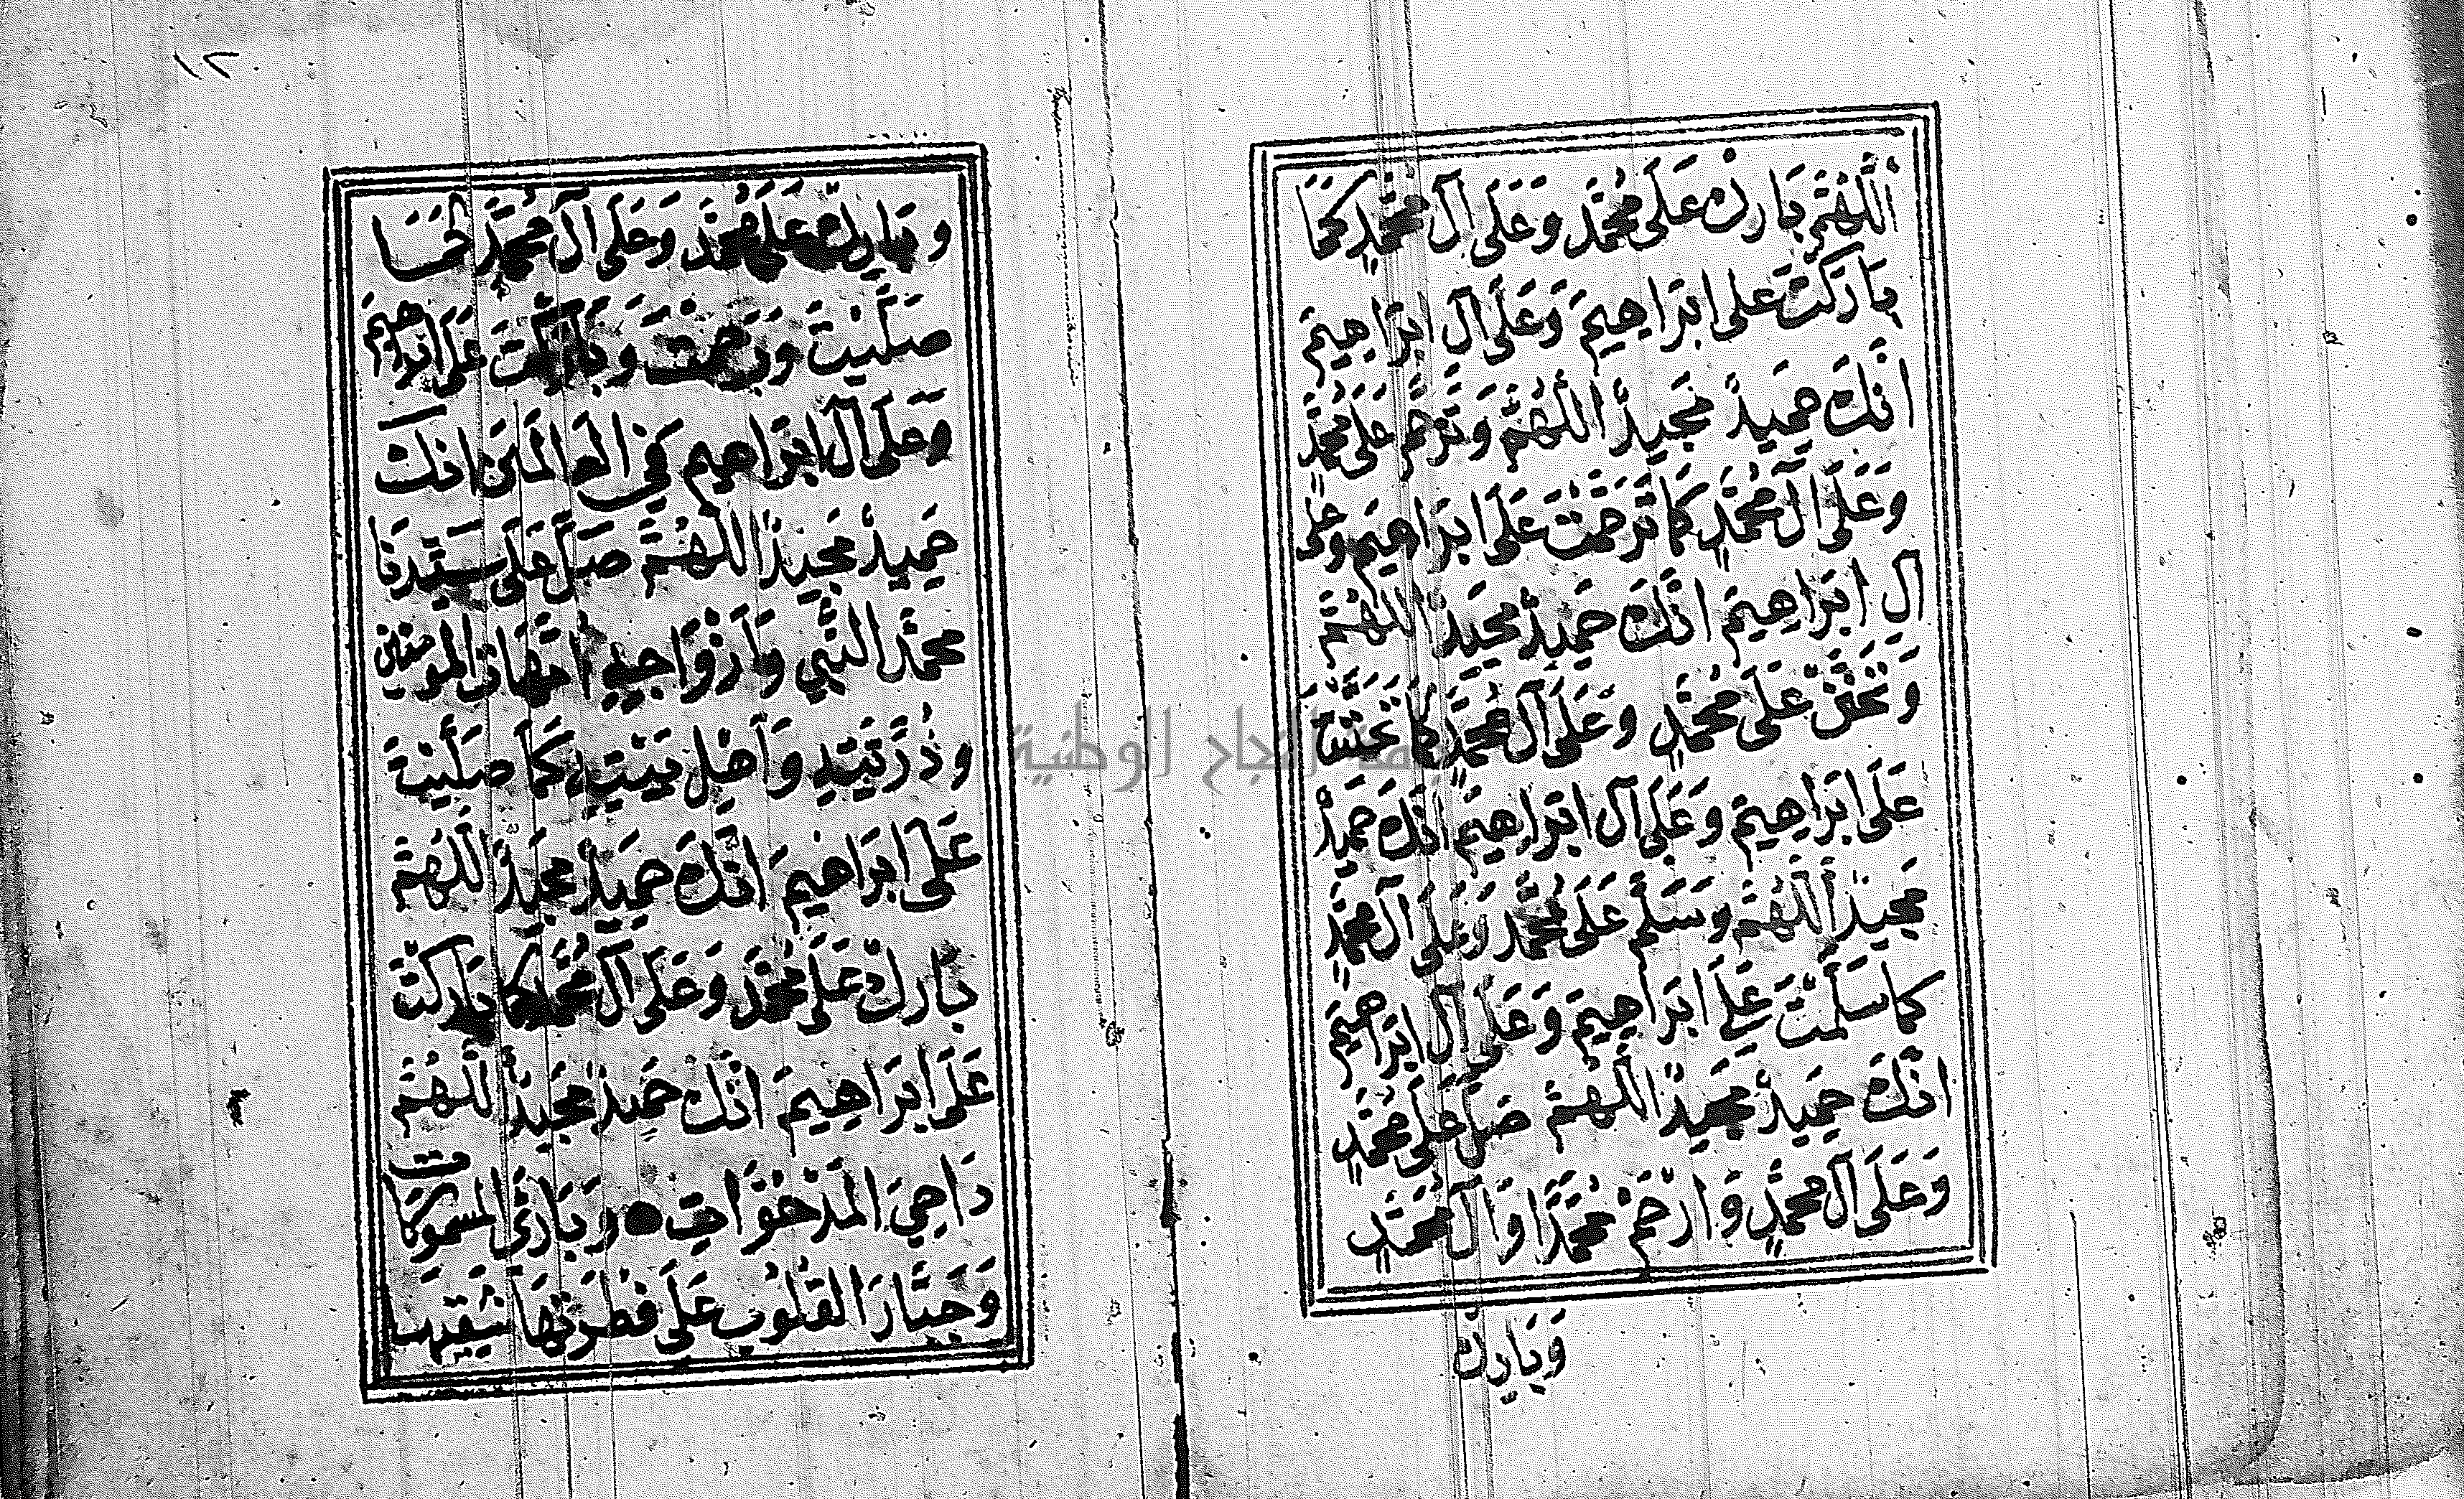 اَللّهُمَّ بَارِكْ عَلَى مُحَمَّدٍ وَعَلَى آلِ مُحَمَّدٍ كَمَا
بَارَكْتَ عَلَى ابْرَاهِيمَ وَعَلَى آلِ ابْرَاهِيمَ
انَّكَ حَمِيدٌ مَجِيدٌ اللّهُمَّ وَتَرَحَّمْ عَلَى مُحَمَّدٍ
وَعَلَى آلِ مُحَمَّدٍ كَمَا تَرَحَّمْتَ عَلَى ابْرَاهِيمَ وَعَلَى
آلِ ابْرَاهِيمَ انَّكَ حَمِيدٌ مَجِيدٌ اللّهُمَّ
وَتَحَنَّنْ عَلَى مُحَمَّدٍ وَعَلَى آلِ مُحَمَّدٍ كَمَا تَحَنَّنْتَ
عَلَى ابْرَاهِيمَ وَعَلَى آلِ ابْرَاهِيمَ انَّكَ حَمِيدٌ
مَجِيدٌ اَللّهُمَّ وَسَلِّمْ عَلَى مُحَمَّدٍ وَعَلَى آلِ مُحَمَّدٍ
كَمَا سَلَّمْتَ عَلَى ابْرَاهِيمَ وَعَلَى آلِ ابْرَاهِيمَ
انَّكَ حَمِيدٌ مَجِيدٌ اللّهُمَّ صَلِّ عَلَى مُحَمَّدٍ
وَعَلَى آلِ مُحَمَّدٍ وَارْحَمْ مُحَمَّدًا وَآلَ مُحَمَّدٍ
وَبَارِكْ
١٢
وبَارِكْ عَلَى مُحَمَّدٍ وَعَلَى آلِ مُحَمَّدٍ كَمَا
صَلَّيْتَ وَرَحِمْتَ وَبَارَكْتَ عَلَى ابْرَاهِيمَ
وَعَلَى آلِ ابْرَاهِيمَ فِي الْعَالَمِينَ انَّكَ
حَمِيدٌ مَجِيدٌ اللّهُمَّ صَلِّ عَلَى سَيِّدِنَا
مُحَمَّدٍ النَّبِي وَأَزْوَاجِهِ أُمَّهَاتِ الْمُومِنِينَ
وَذُرِّيَّتِهِ وَأَهْلِ بَيْتِهِ كَمَا صَلَّيْتَ
عَلَى ابْرَاهِيمَ انَّكَ حَمِيدٌ مَجِيدٌ اَللّهُمَّ
بَارِكْ عَلَى مُحَمَّدٍ وَعَلَى آلِ مُحَمَّدٍ كَمَا بَارَكْتَ
عَلَى ابْرَاهِيمَ انَّكَ حَمِيدٌ مَجِيدٌ اَللّهُمَّ
دَاحِيَ الْمَدْحُوَّاتِ وَبَارِئَ الْمَسْمُوكَاتِ
وَجَبَّارَ الْقُلُوبِ عَلَى فِطْرَتِهَا شَقِيِّهَا
النجاح الوطنية